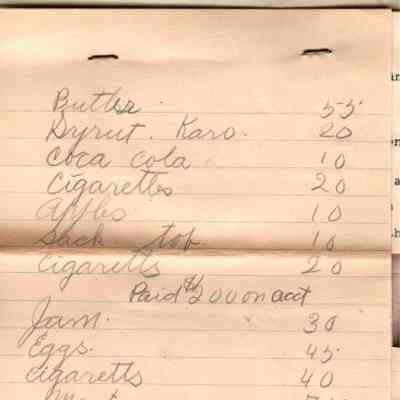 Butter. 55
Syrut. Karo. 20
Coca cola 10
Cigaretts 20
10
Sack top 10
Cigaretts 20
Paid $200 on acct
Jam. 30
Eggs. 45
Cigaretts 40